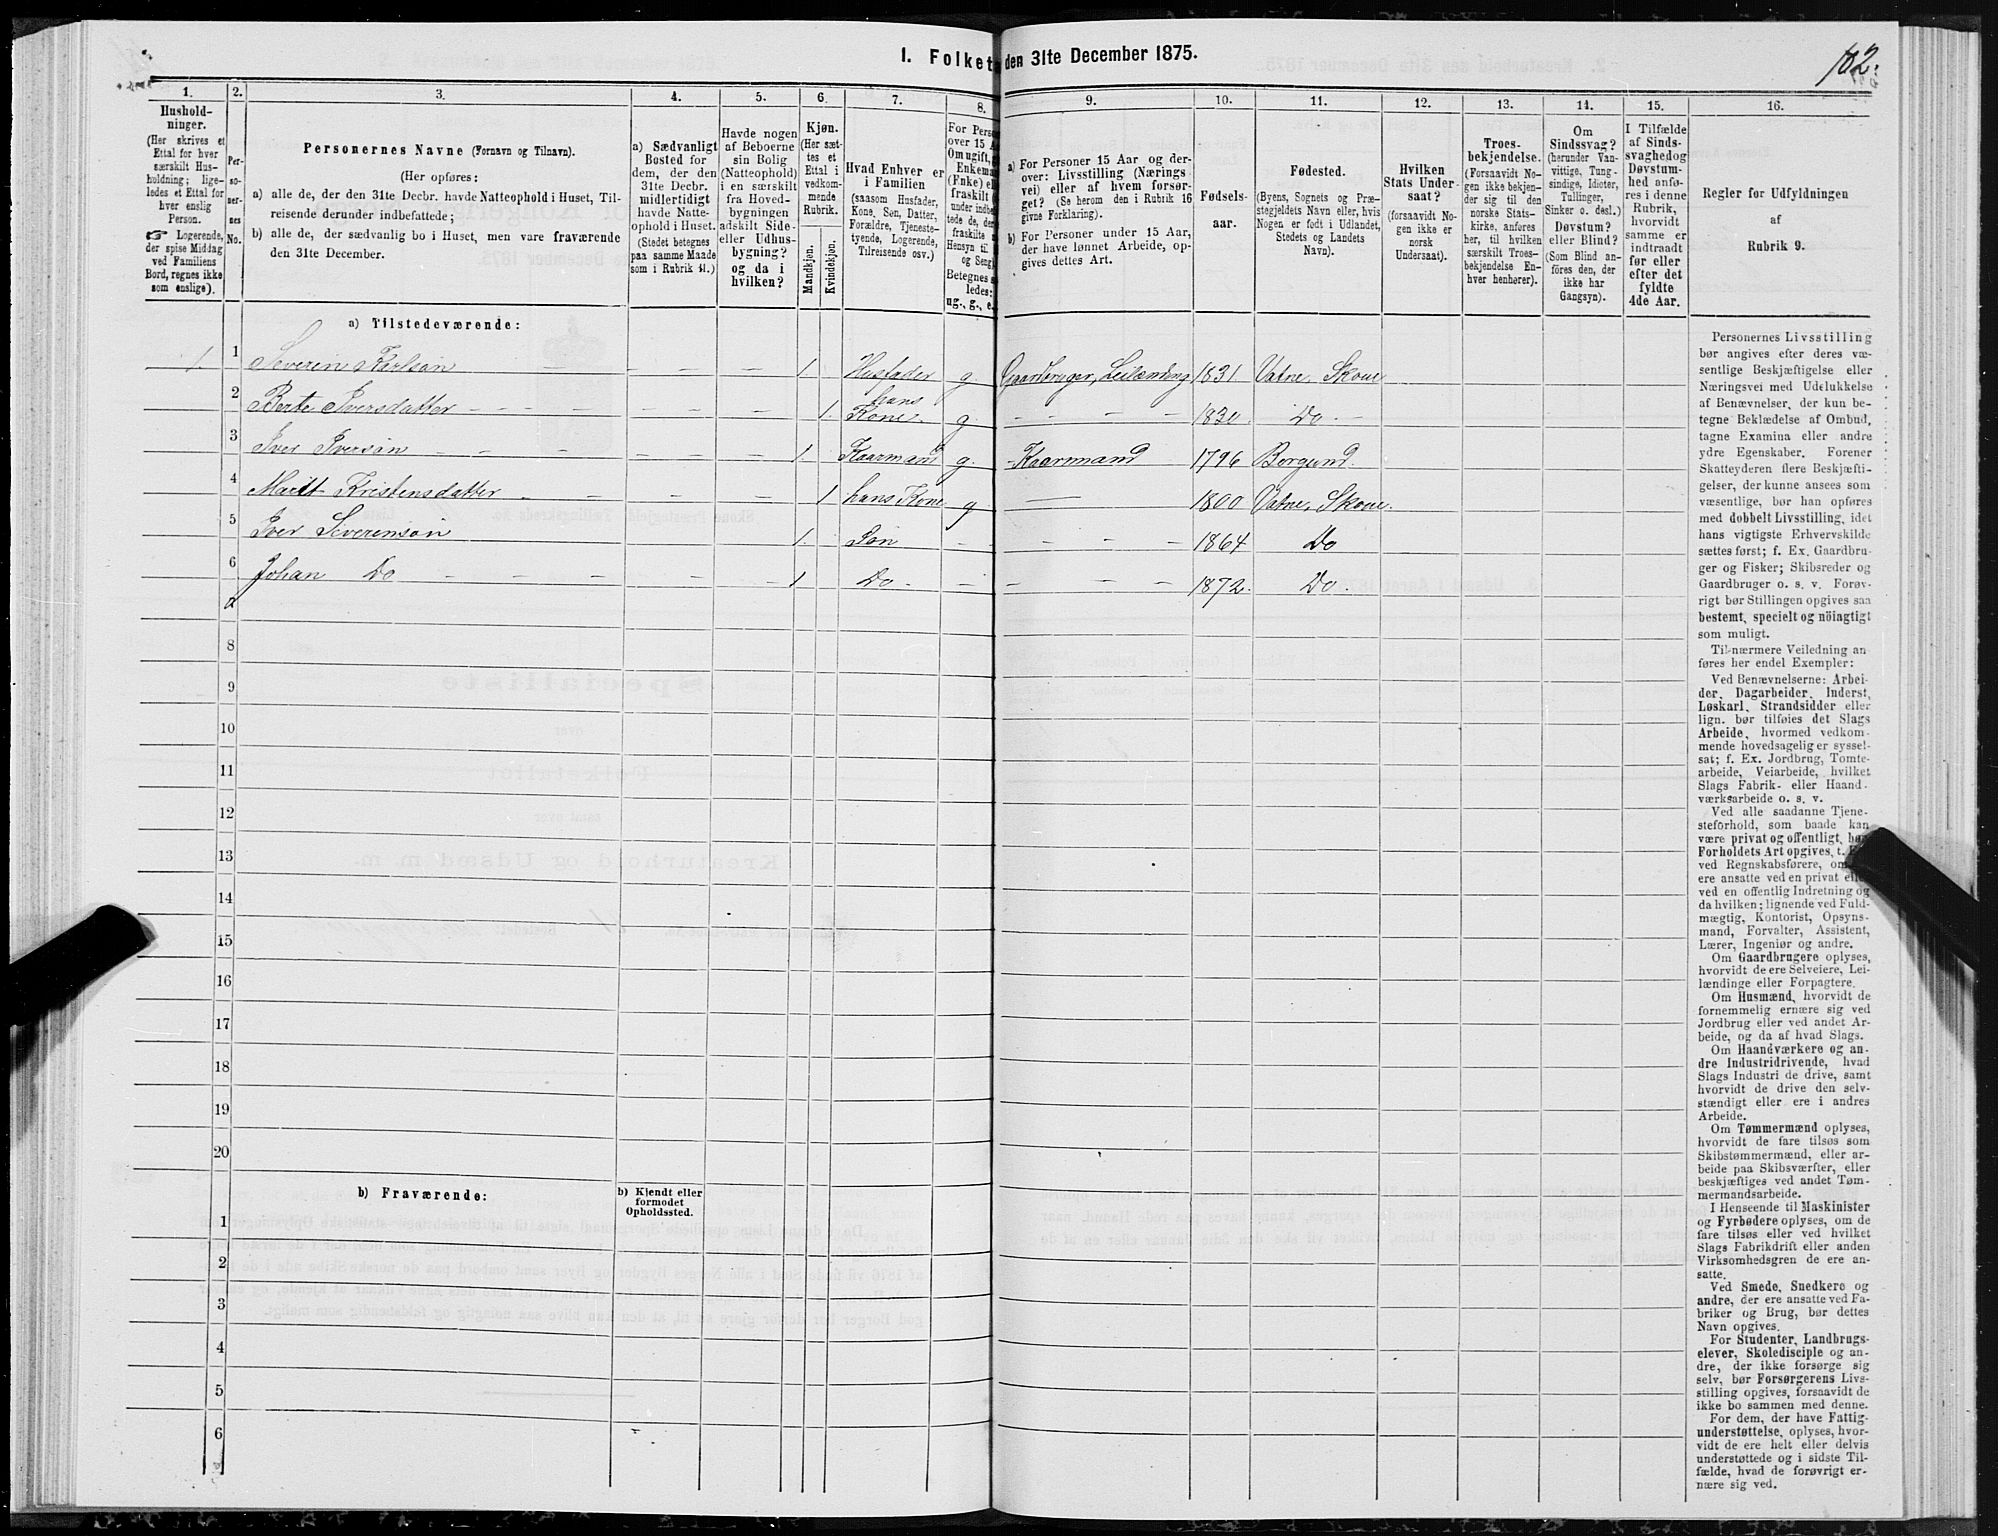 1. Folket
den 31te December 1875.
182.
1.
Hushold-
ninger.
(Her skrives et
Ettal for hver
særskilt Hus-
holdning; lige-
ledes et Ettal for
hver enslig
Person.
☞ Logerende,
der spise Middag
ved Familiens
Bord, regnes ikke
som enslige).
2.
Per-
so-
ner-
nes
No.
3.
Personernes Navne (Fornavn og Tilnavn).
(Her opføres:
a) alle de, der den 31te Decbr. havde Natteophold i Huset, Til-
reisende derunder indbefattede;
b) alle de, der sædvanlig bo i Huset, men vare fraværende
den 31te December.
4.
a) Sædvanligt
Bosted for
dem, der den
31te Decbr.
midlertidigt
havde Natte-
ophold i Huset.
(Stedet betegnes
paa samme Maade
som i Rubrik 11.)
5.
Havde nogen
af Beboerne
sin Bolig
(Natteophold)
i en særskilt
fra Hoved-
bygningen
adskilt Side-
eller Udhus-
bygning?
og da i
hvilken?
6.
Kjøn.
(Her sæt-
tes et
Ettal i
vedkom-
mende
Rubrik.
Mandkjøn.
Kvindekjøn.
7.
Hvad Enhver er
i Familien
(saasom Husfader,
Kone, Søn, Datter,
Forældre, Tjeneste-
tyende, Logerende,
Tilreisende osv.)
8.
For Perso
over 15 A
Om ugift, g
Enkema
(Enke) el
fraskilt (
under indbe
tede de, de
fraskilte
Hensyn til
og Seng)
Betegnes s
ledes:
ug., g., e.
9.
a) For Personer 15 Aar og der-
over: Livsstilling (Nærings
vei) eller af hvem forsør-
get? (Se herom den i Rubrik 16
givne Forklaring).
b) For Personer under 15 Aar,
der have lønnet Arbeide, op-
gives dettes Art.
10.
Fødsels-
aar.
11.
Fødested.
(Byens, Sognets og Præ-
stegjeldets Navn eller, hvis
Nogen er født i Udlandet,
Stedets og Landets
Navn).
12.
Hvilken
Stats Under-
saat?
(forsaavidt No-
gen ikke er
norsk
Undersaat).
13.
Troes-
bekjendelse.
(Forsaavidt No-
gen ikke bekjen-
der sig til den
norske Stats-
kirke, anføres
her, til hvilken
særskilt Troes-
bekjendelse En-
hver henhører).
14.
Om
Sindssvag?
(herunder Van-
vittige, Tung-
sindige, Idioter,
Tullinger,
Sinker o. desl.)
Døvstum?
eller Blind?
(Som Blind an-
føres den, der
ikke har
Gangsyn).
15.
I Tilfælde
af Sinds-
svaghedog
Døvstum-
hed anfø-
res i denne
Rubrik,
hvorvidt
samme er
indtraadt
før eller
efter det
fyldte
4de Aar.
16.
Regler for Udfyldningen
af
Rubrik 9.
a) Tilstedeværende:
1. 1 Severin Karlsøn — — — 1. Husfader g. Gaardbruger, Leilænding 1831 Vatne, Skoue
2 Berte Iversdatter — — — — — — 1. hans Kone. g — — — — 1830. Do —
3 Iver Iversøn — — — — — 1. Kaarmand g. Kaarmand 1796 Borgund.
4 Marit Kristensdatter — — — — 1 hans Kone g — 1800 Vatne, Skoue.
5 Iver Severensøn 1. Søn — — — — 1864 Do
6 Johan Do — — — — — 1 Do. — — — — 1872. Do.
7
8
9
10
11
12
13
14
15
16
17
18
19
20
b) Fraværende:
b) Kjendt eller
formodet
Opholdssted.
1
2
3
4
5
6
Personernes Livsstilling
bør angives efter deres væ-
sentlige Beskjæftigelse eller
Næringsvei med Udelukkelse
af Benævnelser, der kun be-
tegne Beklædelse af Ombud,
tagne Examina eller andre
ydre Egenskaber. Forener
Skatteyderen flere Beskjæfti-
gelser, der kunne ansees som
væsentlige, bør han opføres
med dobbelt Livsstilling, idet
hans vigtigste Erhvervskilde
sættes først; f. Ex. Gaardbru-
ger og Fisker; Skibsreder og
Gaardbruger o. s. v. Forøv-
rigt bør Stillingen opgives saa
bestemt, specielt og nöiagtigt
som muligt.
Til nærmere Veiledning an-
føres her endel Exempler:
Ved Benævnelserne: Arbei-
der, Dagarbeider, Inderst,
Løskarl, Strandsidder eller
lign. bør tilføies det Slags
Arbeide, hvormed vedkom-
mende hovedsagelig er syssel-
sat; f. Ex. Jordbrug, Tomte-
arbeide, Veiarbeide, hvilket
Slags Fabrik- eller Haand-
værksarbeide o. s. v.
Ved alle saadanne Tjene-
steforhold, som baade kan
være privat og offentligt, bør
Forholdets Art opgives, t.
ved Regnskabsførere, om
ere ansatte ved en privat eller
ved en offentlig Indretning og
da hvilken; lignende ved Fuld-
mægtig, Kontorist, Opsyns-
mand, Forvalter, Assistent,
Lærer, Ingeniør og andre.
Om Gaardbrugere oplyses,
hvorvidt de ere Selveiere, Lei-
lændinge eller Forpagtere.
Om Husmænd, hvorvidt de
fornemmelig ernære sig ved
Jordbrug eller ved andet Ar-
beide, og da af hvad Slags.
Om Haandværkere og an-
dre Industridrivende, hvad
Slags Industri de drive, samt
hvorvidt de drive den selv-
stændigt eller ere i andres
Arbeide.
Om Tømmermænd oplyses,
hvorvidt de fare tilsøs som
Skibstømmermænd, eller ar-
beide paa Skibsværfter, eller
beskjæftiges ved andet Tøm-
mermandsarbeide.
I Henseende til Maskinister
og Fyrbødere oplyses, om de
fare tilsøs eller ved hvilket
Slags Fabrikdrift eller anden
Virksomhedsgren de ere an-
satte.
Ved Smede, Snedkere og
andre, der ere ansatte ved Fa-
briker og Brug, bør dettes
Navn opgives.
For Studenter, Landbrugs-
elever, Skoledisciple og an-
dre, der ikke forsørge sig
selv, bør Forsørgerens Livs-
stilling opgives, forsaavidt de
ikke bo sammen med denne.
For dem, der have Fattig-
understøttelse, oplyses, hvor-
vidt de ere helt eller delvis
understøttede og i sidste Til-
fælde, hvad de forøvrigt er-
nære sig ved.